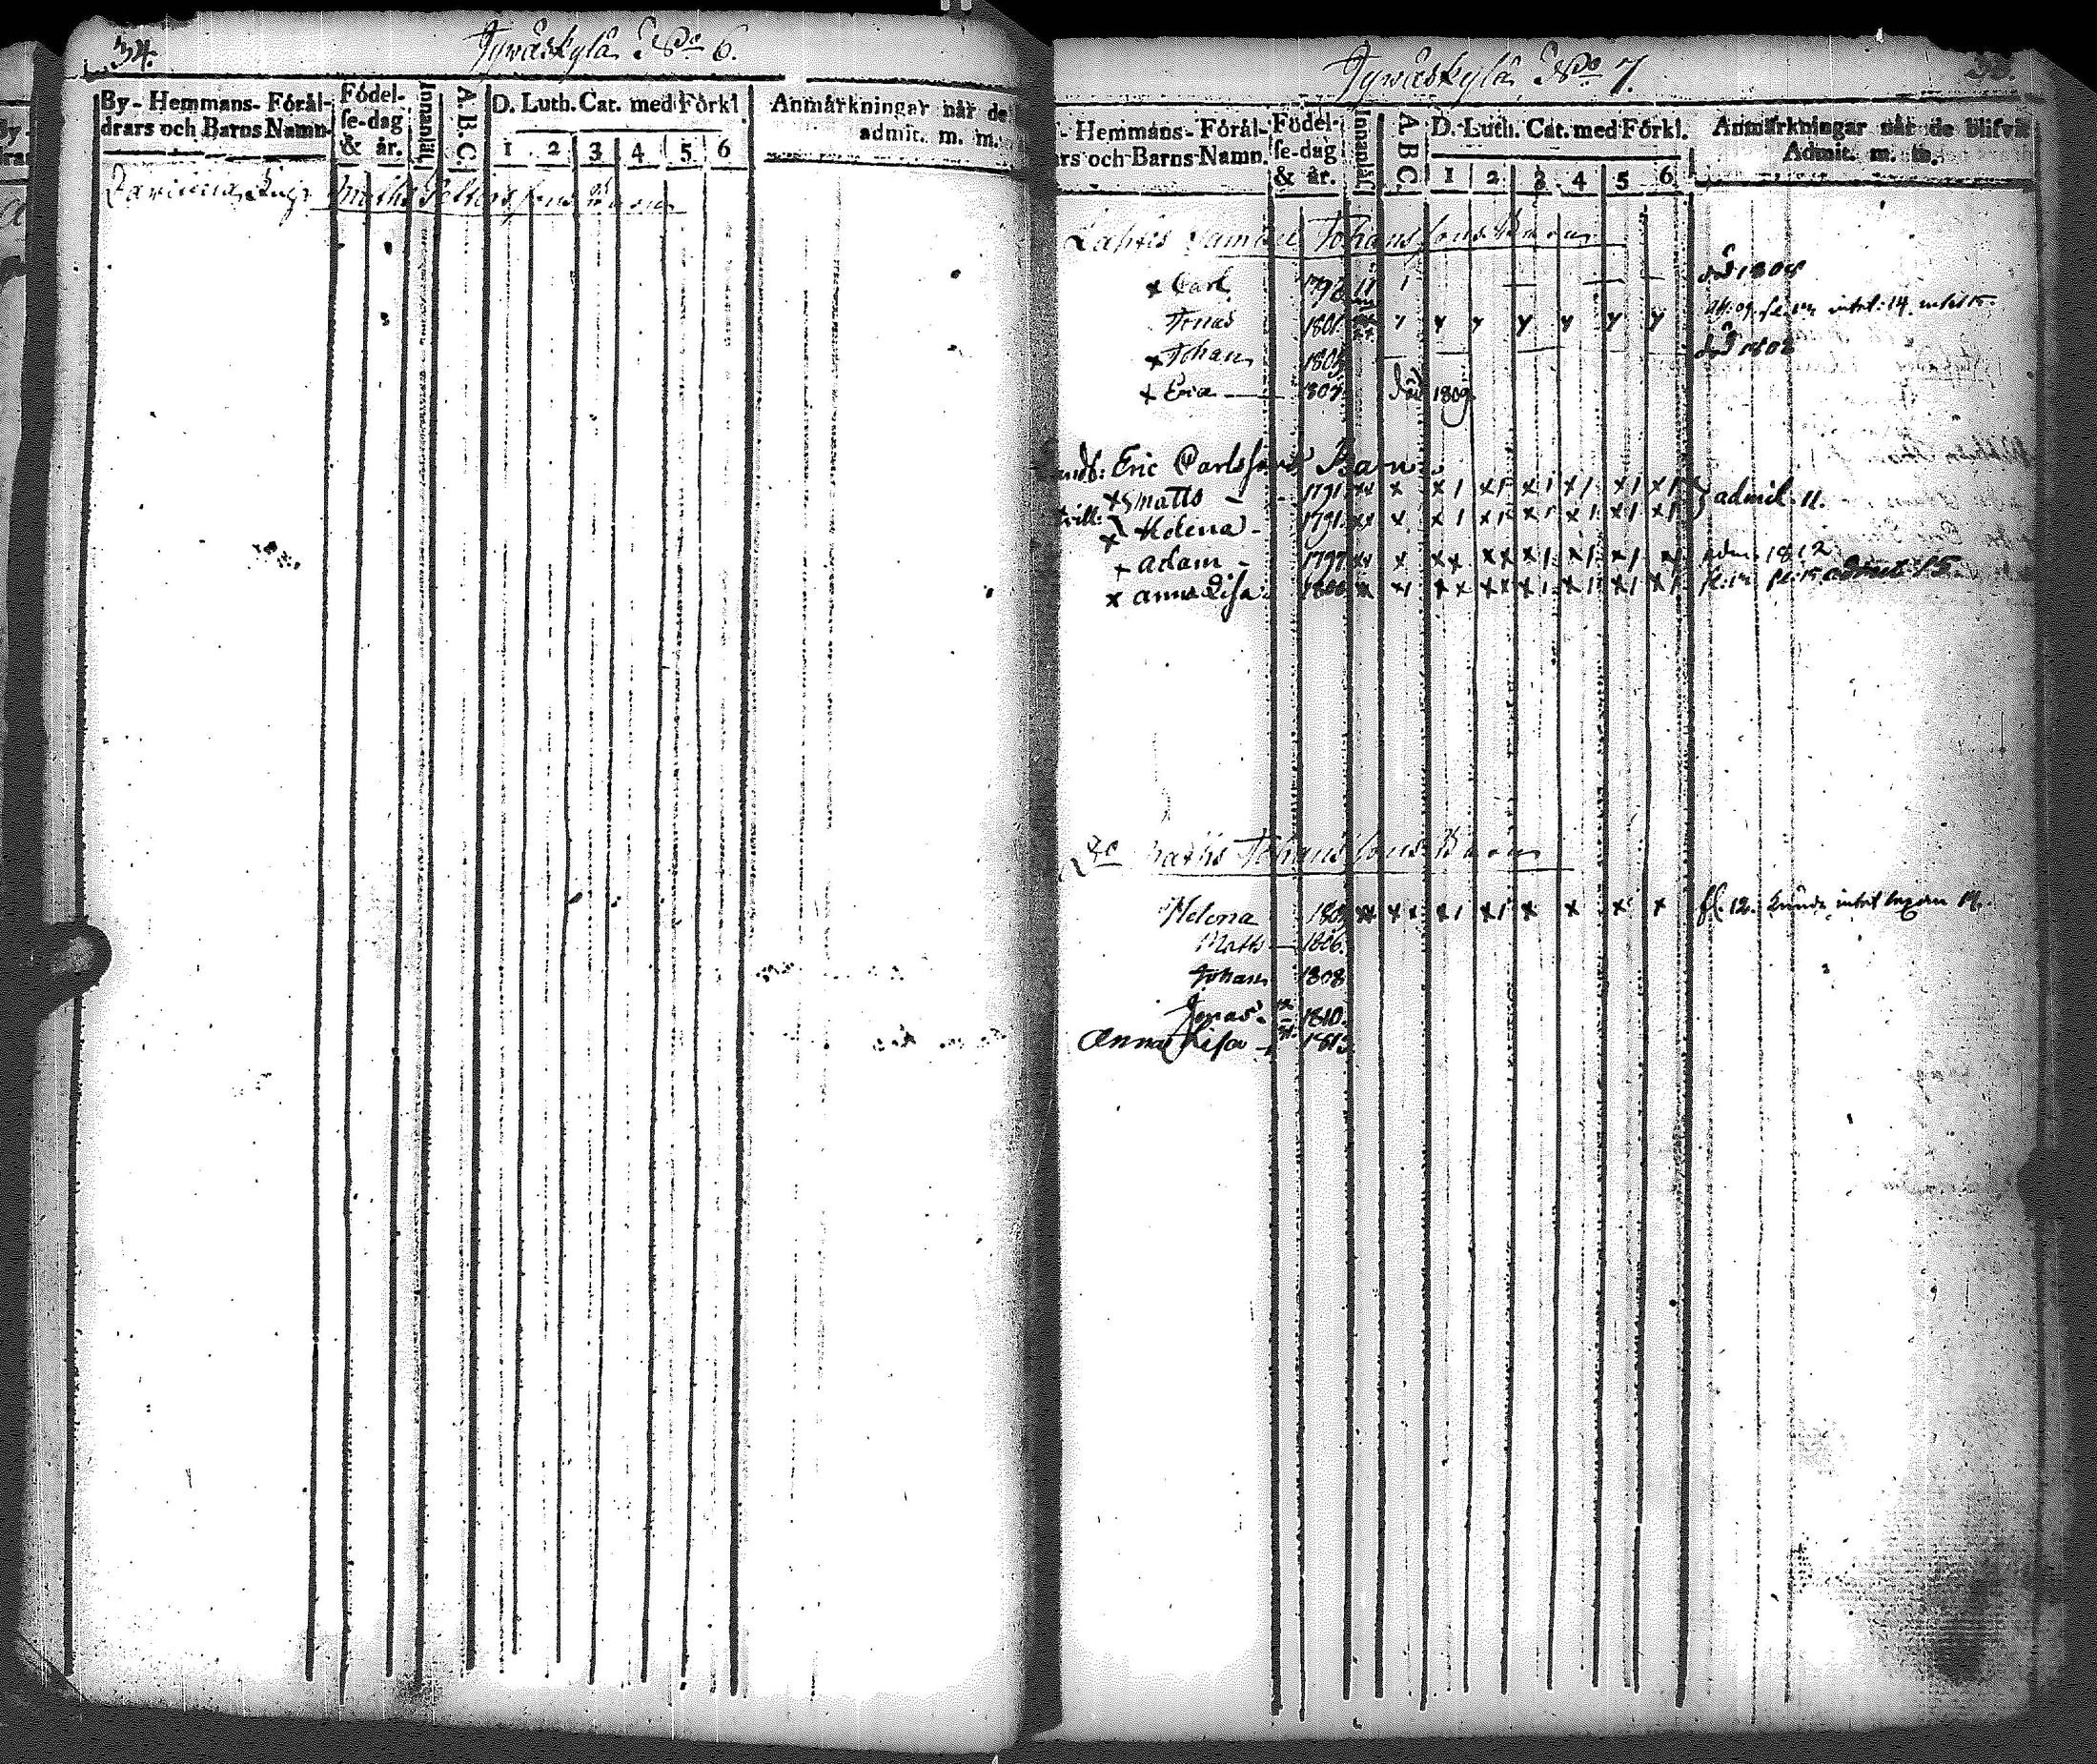 34.
Jywäskylä No 6.
By- Hemmans- Förål-
drars och Barns Namn.
Födel-
se-dag
& år.
Innanläs.
A. B. C.
D. Luth. Cat. med Förkl.
1 2 3 4 5 6
Anmärkningar når de
admit. m. m.
Matts Pettersons Barn
Jywäskylä No 7.
35.
- Hemmans- Förål-
rs och Barns Namn.
Födel-
se-dag
& år.
Innanläs.
A. B. C.
D. Luth. Cat. med Förkl.
1 2 3 4 5 6
Anmärkningar når de blifvit
Admit. m. m.
Samuel Johanssons Barn
x Carl 1797 död 1808
Jonas 1801 y y y y y y y
x Johan död 1808
x Eric 1807 död 1809
Eric Carlssons Barn
x Matts - 1791 xx x x1 x1 x1 x1 x1 x1 admit. 11.
x Helena - 1791 xx x x1 x1 x1 x1 x1 x1
x Adam - 1797 xx x xx xx x1 x1 x1 adm. 1812
x Anna Lisa 1800 x1 xx xx x1 x1 x1 x1 admit 15
Do Matts Johanssons Barn
Helena x1 x1 x x x x fl. 12. kunde intet
Matts - 1806.
Johan 1808
Jonas. 1810.
Anna Lisa - 1813